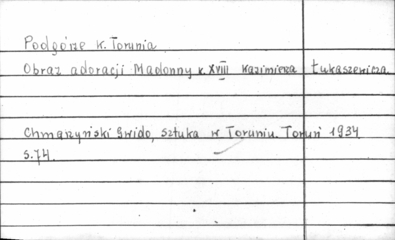 Podgórze k. Torunia
Obraz adoracji Madonny k. XVIII Kazimierza Łukaszewicza
Chmarzyński Gwido, Sztuka w Toruniu. Toruń 1934
s. 74.